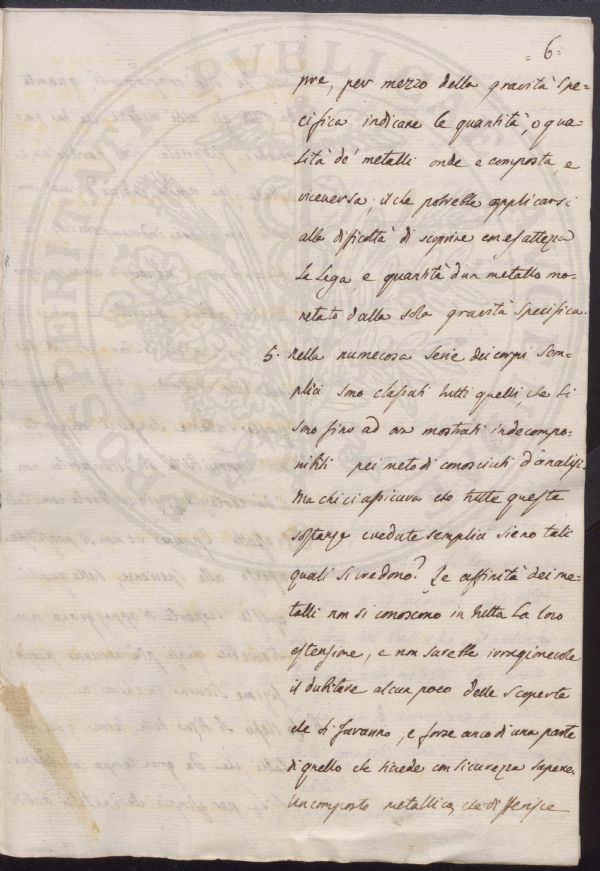 =6=
pre, per mezzo della gravità spe-
cifica indicare le quantità, o qua-
lità de' metalli onde e composta, e
viceversa; il che potrebbe applicarsi
alla dificoltà di scoprire con esattezza
la Lega, e quantità d'un metallo mo-
netato dalla sola gravità specifica.
5. nella numerosa serie dei corpi sem-
plici sono classati tutti quelli, che si
sono fino ad ora mostrati indecompo-
nibili pei metodi conosciuti d'analisi.
Ma chi ci assicura che tutte queste
sostanze credute semplici sieno tali
quali si credono? Le affinità dei me-
talli non si conoscono in tutta la loro
estensione, e non sarebbe irragionevole
il dubitare alcun poco delle scoperte
che si faranno, e forse anco di una parte
di quello che si crede con sicurezza sapere.
Un composto metallico, che differisce